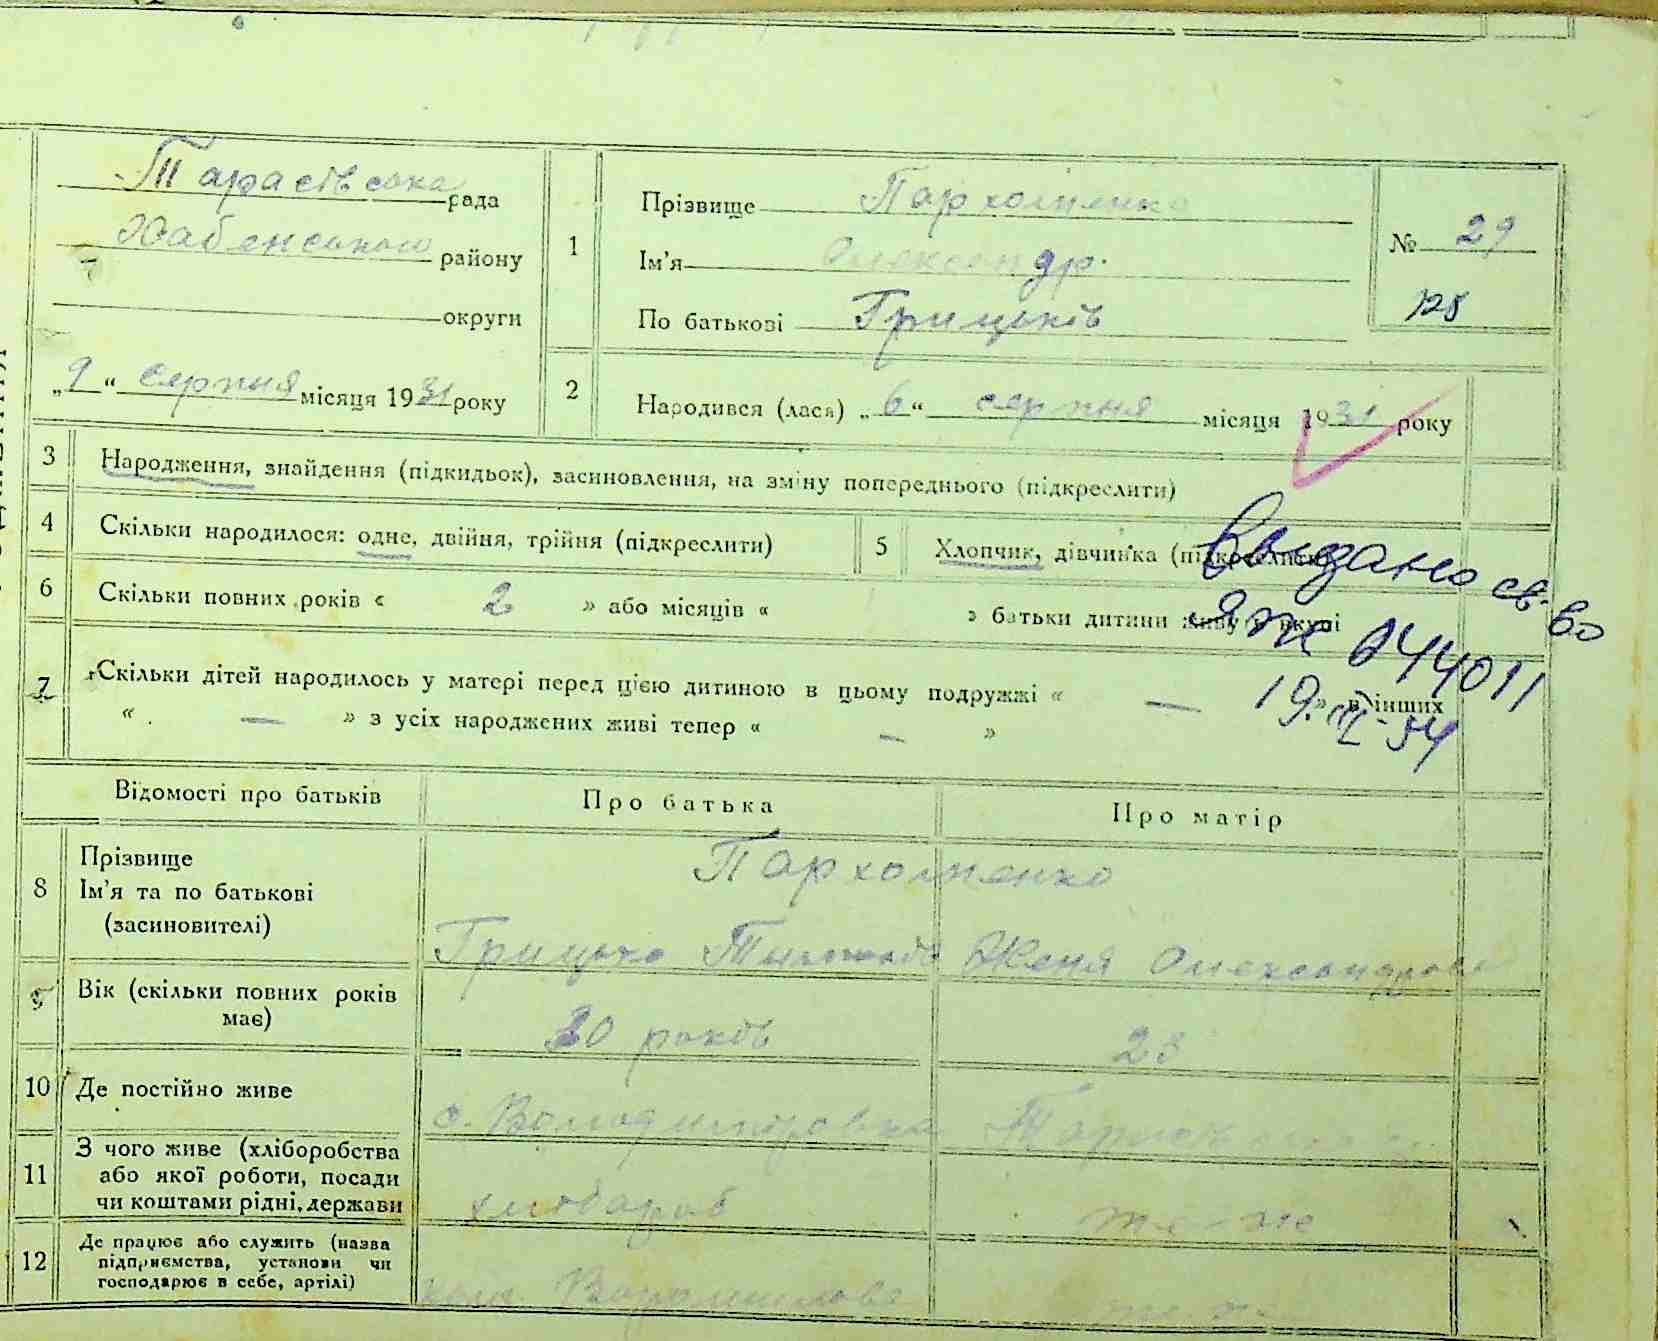 Тарасівська рада
Хабенського району
округи
„9“ серпня місяця 1931 року
1
Прізвище Пархоменко
Ім'я Олександр.
По батькові Грицьків
№ 29
125
2
Народився (лася) „6“ серпня місяця 1931 року
3 Народження, знайдення (підкидьок), засиновлення, на зміну попереднього (підкреслити)
4 Скільки народилося: одне, двійня, трійня (підкреслити)
5 Хлопчик, дівчинка (підкреслити)
Выдано св-во
ЯЖ 044011
19.
54
6 Скільки повних років « 2 » або місяців « » батьки дитини живуть вкупі
7 Скільки дітей народилось у матері перед цією дитиною в цьому подружжі « — » в інших
« — » з усіх народжених живі тепер « — »
Відомості про батьків Про батька Про матір
8 Прізвище
Ім'я та по батькові
(засиновителі)
Пархоменко
Грицько Женя Олександровна
9 Вік (скільки повних років
має)
30 років 23
10 Де постійно живе
с. Володимировка
11 З чого живе (хліборобства
або якої роботи, посади
чи коштами рідні, держави
хлібороб те-же
12 Де працює або служить (назва
підприємства, установи чи
господарює в себе, артілі)
Ворошилова